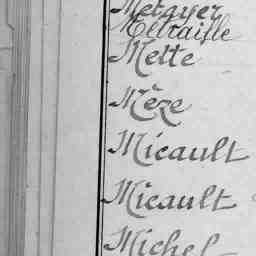 Métayer
Métraille
Mette
Mèze
Micault
Micault
Michel